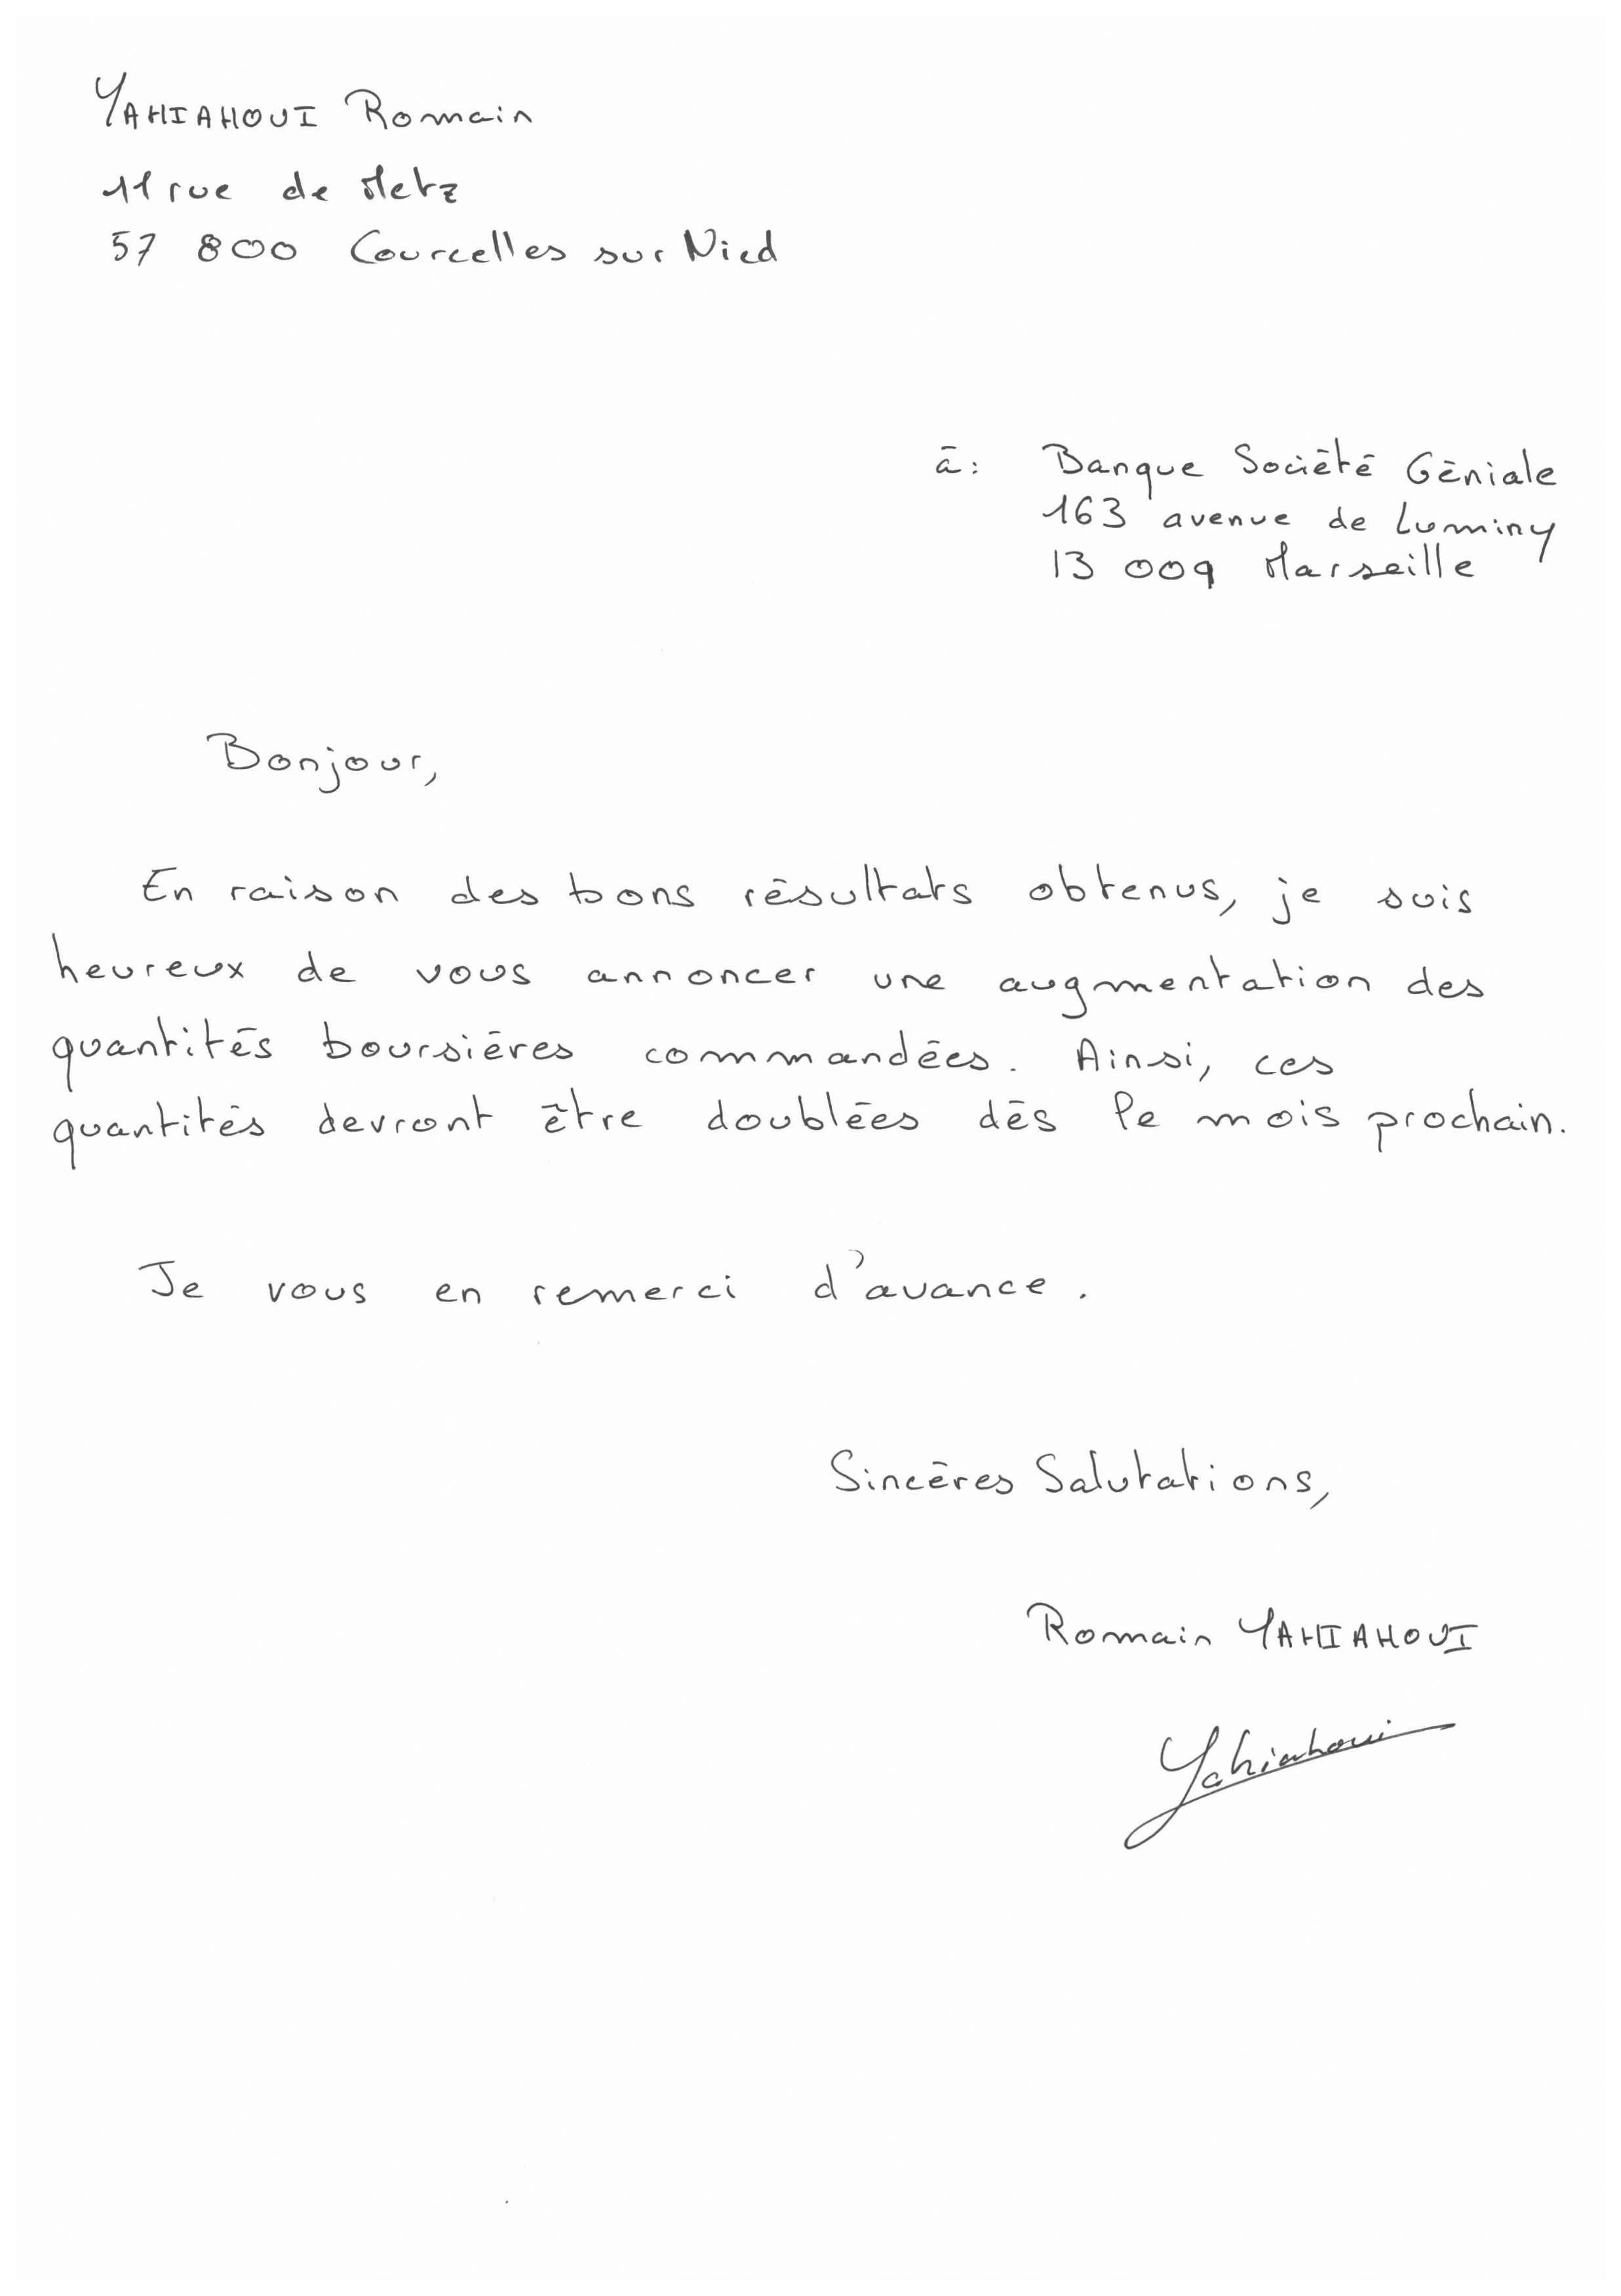 YAHIAHOUI Romain
11 rue de Metz
57 800 Courcelles sur Nied
à: Banque Société Géniale
163 avenue de Luminy
13 009 Marseille
Bonjour,
En raison des bons résultats obtenus, je suis
heureux de vous annoncer une augmentation des
quantités boursières commandées. Ainsi, ces
quantités devront être doublées dès le mois prochain.
Je vous en remerci d'avance.
Sincères Salutations,
Romain YAHIAHOUI
Yahiahoui